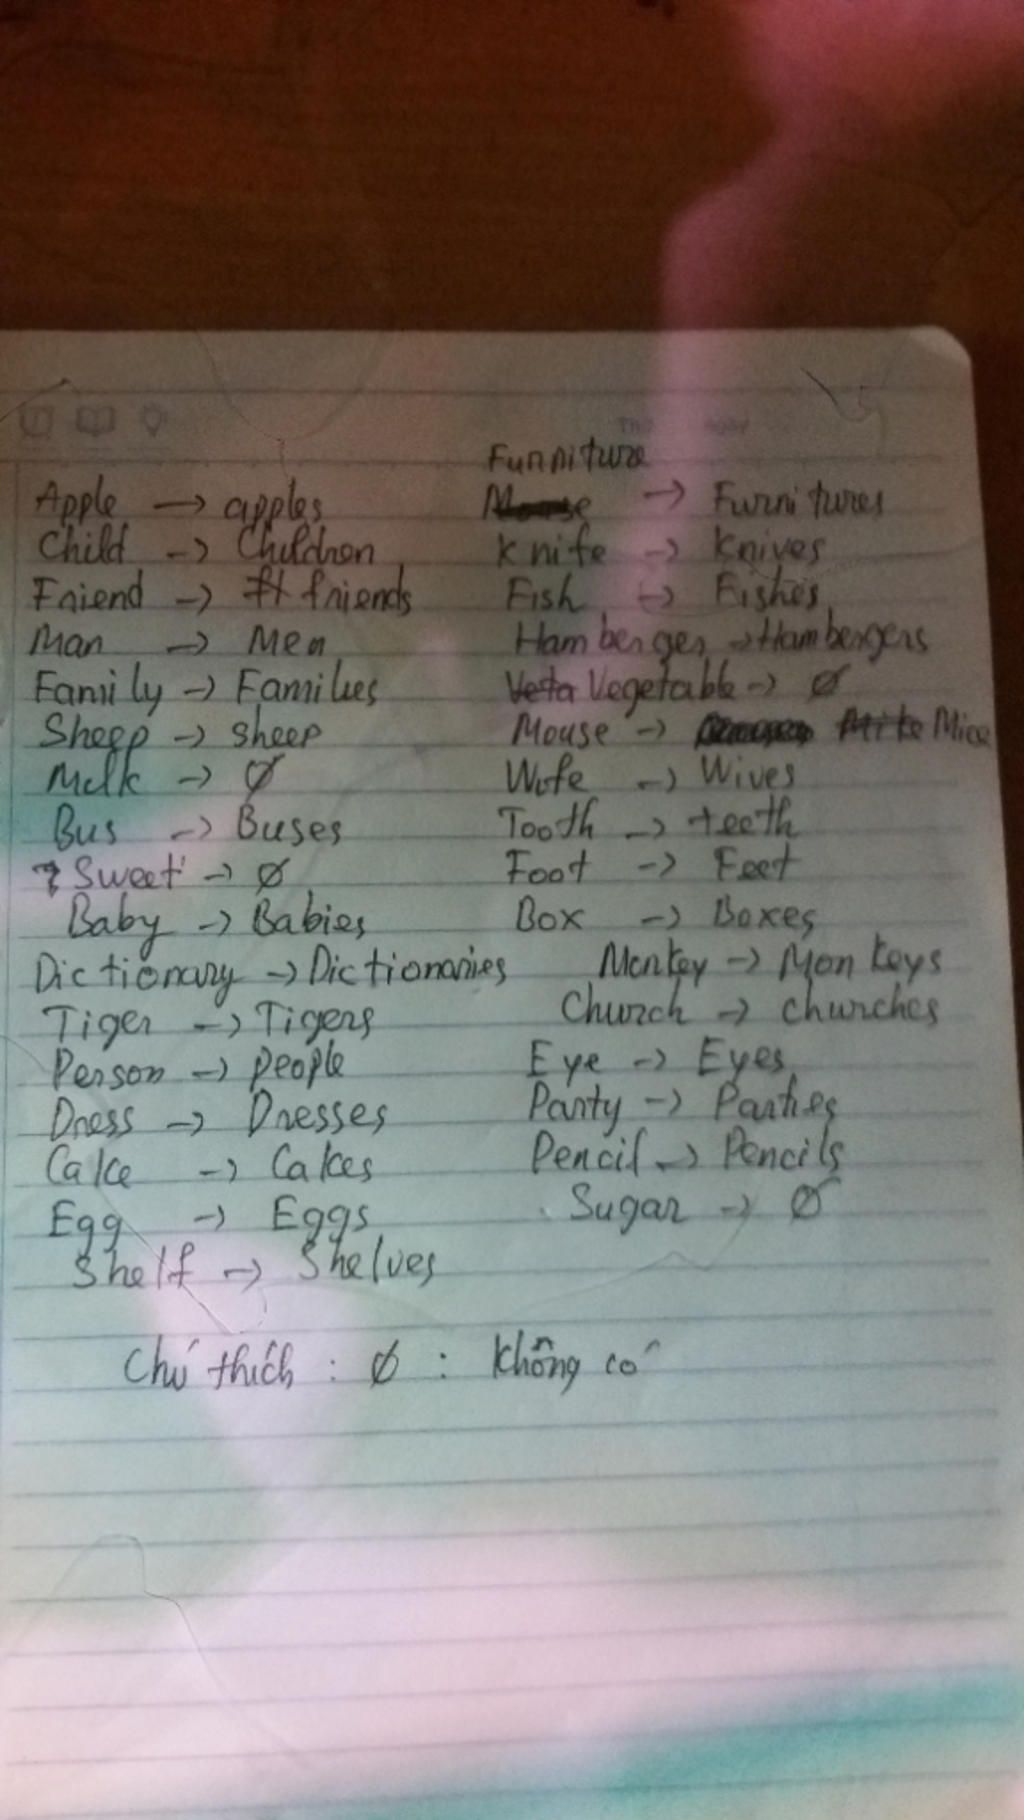 Furniture
Apple → apples
Child → Children
Friend → friends
Man → Men
Family → Families
Sheep → sheep
Milk → Ø
Bus → Buses
Sweet → Ø
Baby → Babies
Dictionary → Dictionaries
Tiger → Tigers
Person → people
Dress → Dresses
Cake → Cakes
Egg → Eggs
Shelf → Shelves
Mouse → Furnitures
Knife → Knives
Fish → Fishes
Hamberger → Hambergers
Veta Vegetable → Ø
Mouse → Mike Mice
Wife → Wives
Tooth → teeth
Foot → Feet
Box → Boxes
Monkey → Monkeys
Church → churches
Eye → Eyes
Party → Parties
Pencil → Pencils
Sugar → Ø
Chú thích : Ø : không có